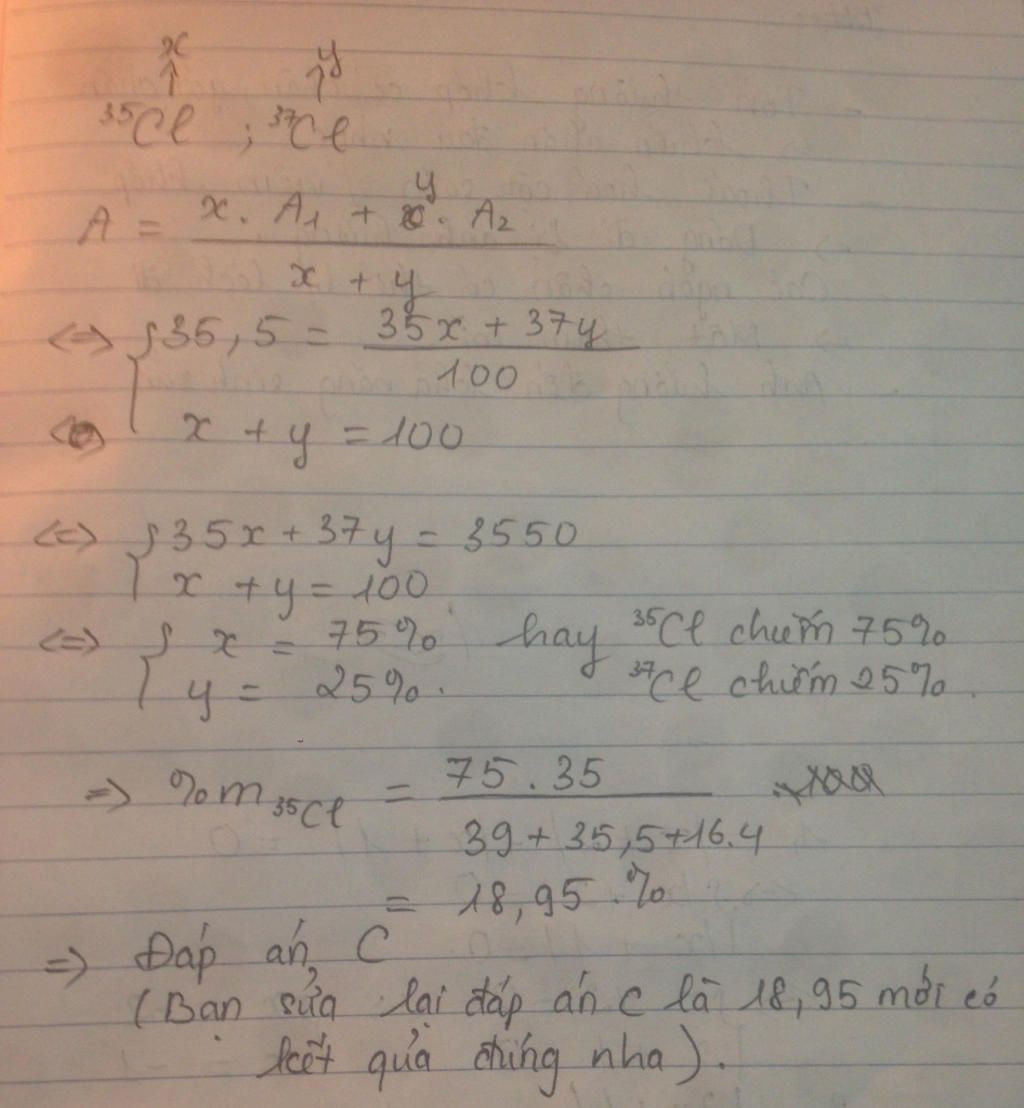 x y
↑ ↑
³⁵Cl ; ³⁷Cl
A = (x. A₁ + y. A₂) / (x + y)
<=> { 35,5 = (35x + 37y) / 100
<=> x + y = 100
<=> { 35x + 37y = 3550
x + y = 100
<=> { x = 75% hay ³⁵Cl chiếm 75%
y = 25%. ³⁷Cl chiếm 25%.
=> %m ³⁵Cl = (75.35) / (39 + 35,5 + 16.4)
= 18,95 %
=> Đáp án C
(Bạn sửa lại đáp án C là 18,95 mới có
kết quả đúng nha).